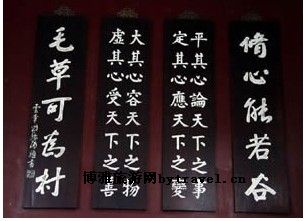 脩心能若谷
平其心論天下之事
定其心應天下之變
大其心容天下之物
虛其心受天下之善
毛草可為村
博雅旅游网bytravel.cn